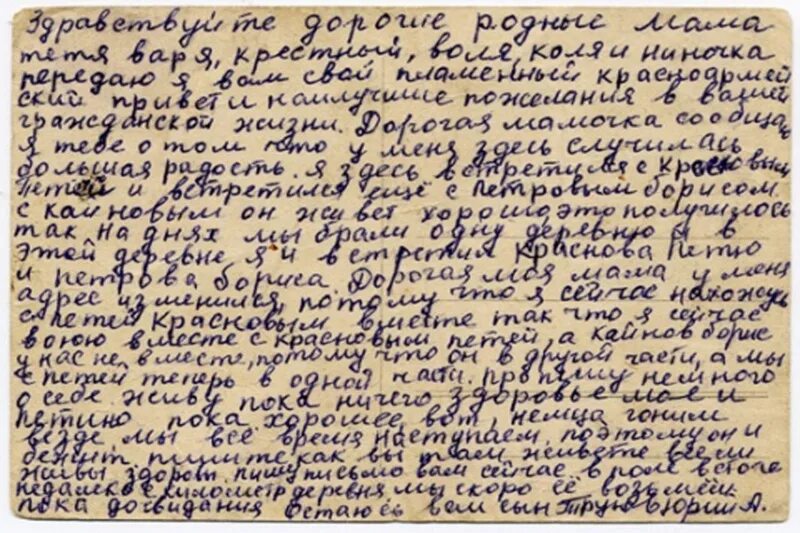 Здравствуйте дорогие родные мама
тетя варя, крестный, воля, коля и ниночка
передаю я вам свой пламенный красноармей
ский привет и наилучшие пожелания в вашей
гражданской жизни. Дорогая мамочка сообщаю
я тебе о том что у меня здесь случилась
большая радость. я здесь встретился с красновым
петей и встретился ещё с петровым борисом
с каиновым он живет хорошо, это получилось
так на днях мы брали одну деревню и в
этой деревне я и встретил Краснова Петю
и петрова бориса. Дорогая моя мама у меня
адрес изменился, потому что я сейчас нахожусь
с петей красновым вместе так что я сейчас
воюю вместе с красновым петей, а каинов борис
у нас не вместе, потому что он в другой части, а мы
с петей теперь в одной части. пропишу немного
о себе. живу пока ничего здоровье мое и
петино пока хорошее, вот, немца гоним
везде, мы всё время наступаем, поэтому он и
бежит. пишите как вы там живете все ли
живы здоровы. пишу письмо вам сейчас в поле в стоге
недалеко с километр деревня, мы скоро её возьмём
пока досвидания остаюсь вам сын юрий А.